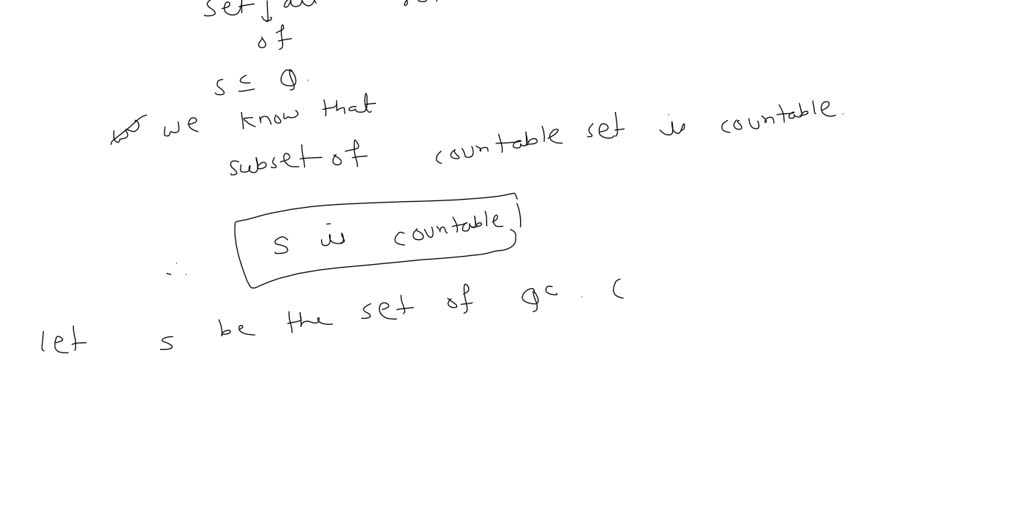 set all
of
s ⊆ Q.
we know that
subset of countable set is countable.
∴ s is countable
let s be the set of Qc. (